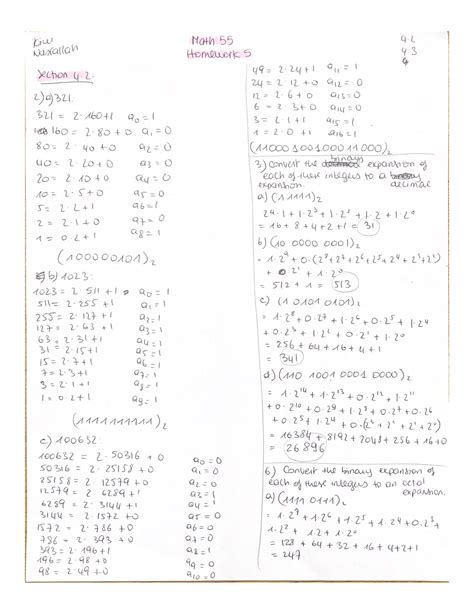 Math 55
Homework 5
4.2
4.3
Section 4.2:
2) a) 321:
321 = 2·160+1 a₀ = 1
160 = 2·80+0 a₁ = 0
80 = 2·40+0 a₂ = 0
40 = 2·20+0 a₃ = 0
20 = 2·10+0 a₄ = 0
10 = 2·5+0 a₅ = 0
5 = 2·2+1 a₆ = 1
2 = 2·1+0 a₇ = 0
1 = 0·2+1 a₈ = 1
(100000101)₂
b) 1023:
1023 = 2·511+1 a₀ = 1
511 = 2·255+1 a₁ = 1
255 = 2·127+1 a₂ = 1
127 = 2·63+1 a₃ = 1
63 = 2·31+1 a₄ = 1
31 = 2·15+1 a₅ = 1
15 = 2·7+1 a₆ = 1
7 = 2·3+1 a₇ = 1
3 = 2·1+1 a₈ = 1
1 = 0·2+1 a₉ = 1
(1111111111)₂
c) 100632:
100632 = 2·50316+0 a₀ = 0
50316 = 2·25158+0 a₁ = 0
25158 = 2·12579+0 a₂ = 0
12579 = 2·6289+1 a₃ = 1
6289 = 2·3144+1 a₄ = 1
3144 = 2·1572+0 a₅ = 0
1572 = 2·786+0 a₆ = 0
786 = 2·393+0 a₇ = 0
393 = 2·196+1 a₈ = 1
196 = 2·98+0 a₉ = 0
98 = 2·49+0 a₁₀ = 0
49 = 2·24+1 a₁₁ = 1
24 = 2·12+0 a₁₂ = 0
12 = 2·6+0 a₁₃ = 0
6 = 2·3+0 a₁₄ = 0
3 = 2·1+1 a₁₅ = 1
1 = 2·0+1 a₁₆ = 1
(11000100100011000)₂
3) Convert the binary expansion of
each of these integers to a decimal
expansion.
a) (11111)₂
2⁴·1+1·2³+1·2²+1·2+1·2⁰
= 16+8+4+2+1 = 31
b) (10 0000 0001)₂
= 512+1 = 513
c) (1 0101 0101)₂
= 1·2⁸+0·2⁷+1·2⁶+0·2⁵+1·2⁴
+0·2³+1·2²+0·2¹+1·2⁰
= 256+64+16+4+1
= 341
d) (110 1001 0001 0000)₂
= 1·2¹⁴+1·2¹³+0·2¹²+1·2¹¹
+0·2¹⁰+0·2⁹+1·2⁸+0·2⁷+0·2⁶
= 16384+8192+2048+256+16+0
= 26896
6) Convert the binary expansion of
each of these integers to an octal
expansion.
a) (1111 0111)₂
= 1·2⁷+1·2⁶+1·2⁵+1·2⁴+0·2³+
1·2²+1·2+1·2⁰
= 128+64+32+16+4+2+1
= 247